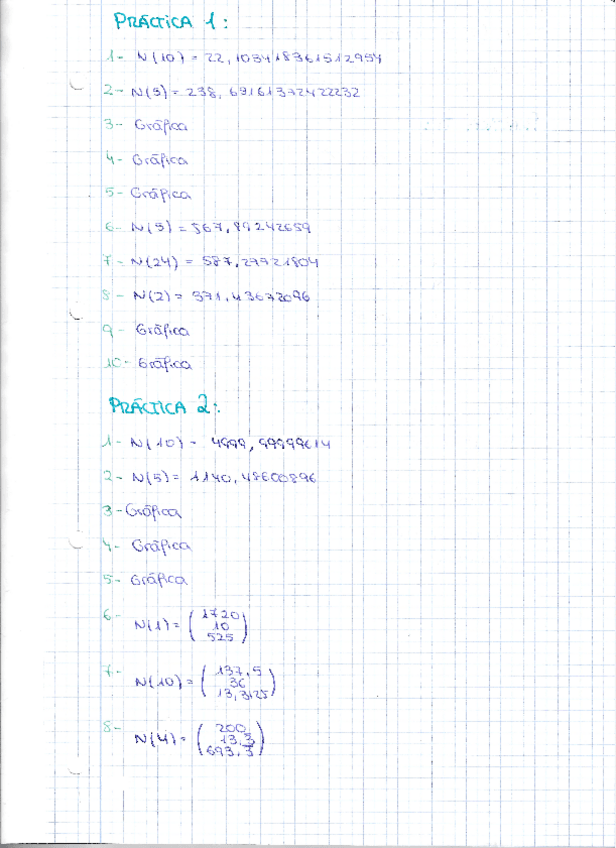 PRÁCTICA 1:
1- N(10) = 22,103418361512954
2- N(5) = 238,69161372422232
3- Gráfica
4- Gráfica
5- Gráfica
6- N(5) = 567,89242659
7- N(24) = 587,29921804
8- N(2) = 371,43672096
9- Gráfica
10- Gráfica
PRÁCTICA 2:
1- N(10) = 4999,99999614
2- N(5) = 1140,48600896
3- Gráfica
4- Gráfica
5- Gráfica
6- N(1) = (1720
10
525)
7- N(10) = (137,5
36
13,3125)
8- N(4) = (200
13,3
693,3)